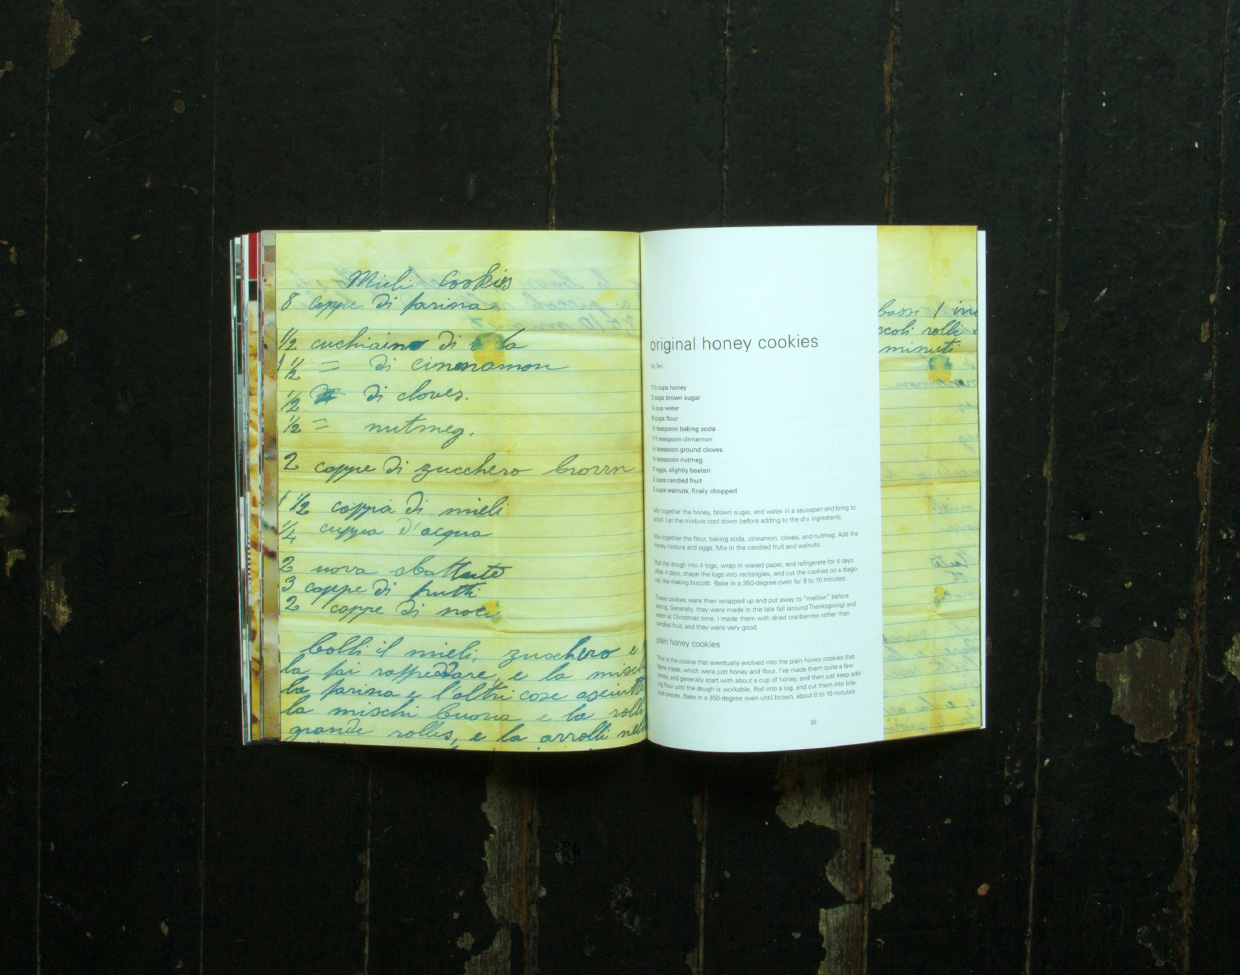 Mieli Cookies
8 coppe di farina
1/2 cuchiaino di soda
1 1/2 = di cinnamon
1/2 = di cloves.
1/2 = nutmeg.
2 coppe di zucchero brown
1 1/2 coppia di mieli
1/4 cuppia d'acqua
2 uova sbattute
3 coppe di frutti
2 coppe di noci
Bolli il mieli, zucchero e
la fai raffreddare, e la mischi
la farina e l'altri cose asciutti
la mischi buona e la rolli
grande rolls, e la arrolli nel
original honey cookies
for Teri
1½ cups honey
2 cups brown sugar
¼ cup water
8 cups flour
½ teaspoon baking soda
1½ teaspoon cinnamon
½ teaspoon ground cloves
½ teaspoon nutmeg
2 eggs, slightly beaten
3 cups candied fruit
2 cups walnuts, finely chopped
Mix together the honey, brown sugar, and water in a saucepan and bring to
a boil. Let the mixture cool down before adding to the dry ingredients.
Mix together the flour, baking soda, cinnamon, cloves, and nutmeg. Add the
honey mixture and eggs. Mix in the candied fruit and walnuts.
Roll the dough into 4 logs, wrap in waxed paper, and refrigerate for 4 days.
After 4 days, shape the logs into rectangles, and cut the cookies on a diago-
nal, like making biscotti. Bake in a 350-degree oven for 8 to 10 minutes.
These cookies were then wrapped up and put away to "mellow" before
eating. Generally, they were made in the late fall (around Thanksgiving) and
eaten at Christmas time. I made them with dried cranberries rather than
candied fruit, and they were very good.
plain honey cookies
This is the cookie that eventually evolved into the plain honey cookies that
made, which were just honey and flour. I've made them quite a few
times, and generally start with about a cup of honey, and then just keep add-
ing flour until the dough is workable. Roll into a log, and cut them into bite-
size pieces. Bake in a 350-degree oven until brown, about 8 to 10 minutes.
rolli
minuti